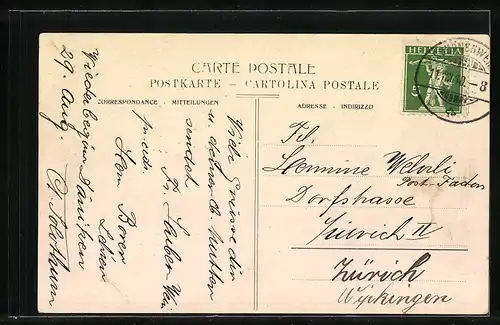 CARTE POSTALE
POSTKARTE – CARTOLINA POSTALE
CORRESPONDANCE - MITTEILUNGEN
ADRESSE - INDIRIZZO
HELVETIA
5
Viele Grüsse dir
u. deiner lb. Mutter
sendet
Herrn Borer
Lehrer
Wiederbeginn
29. Aug.
Solothurn
Frl.
Hermine Weberli
Post-Faden
Dorfstrasse
Zürich IV
Zürich
Wipkingen